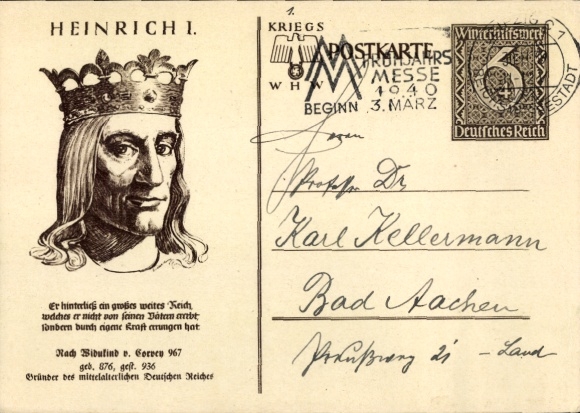 HEINRICH I.
Er hinterließ ein großes weites Reich,
welches er nicht von seinen Vätern ererbt,
sondern durch eigene Kraft errungen hat
Nach Widukind v. Corvey 967
geb. 876, gest. 936
Gründer des mittelalterlichen Deutschen Reiches
1.
KRIEGS
WHW
POSTKARTE
FRÜHJAHRS
MESSE
1940
BEGINN 3. MÄRZ
Winterhilfswerk
6
Deutsches Reich
Herrn
Dr
Karl Kellermann
Bad Aachen
- Land